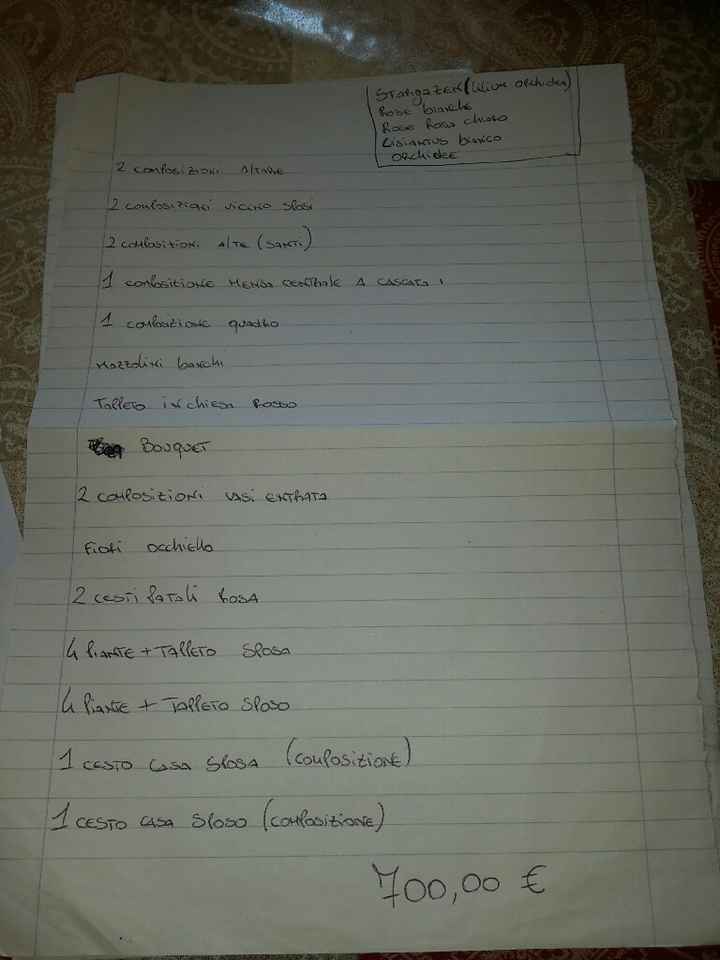 STARGAZER (Lilium Orchidea)
Rose bianche
Rose Rosa chiaro
Lisiantus bianco
ORCHIDEE
2 composizioni Altare
2 composizioni vicino sposi
2 composizioni Alte (santi)
1 composizione MENSA CENTRALE A CASCATA
1 composizione quadro
Mazzolini banchi
TAPPETO in chiesa Rosso
BOUQUET
2 composizioni VASI ENTRATA
Fiori occhiello
2 CESTI PETALI ROSA
4 PIANTE + TAPPETO SPOSA
4 PIANTE + TAPPETO SPOSO
1 CESTO CASA SPOSA (COMPOSIZIONE)
1 CESTO CASA SPOSO (COMPOSIZIONE)
700,00 €